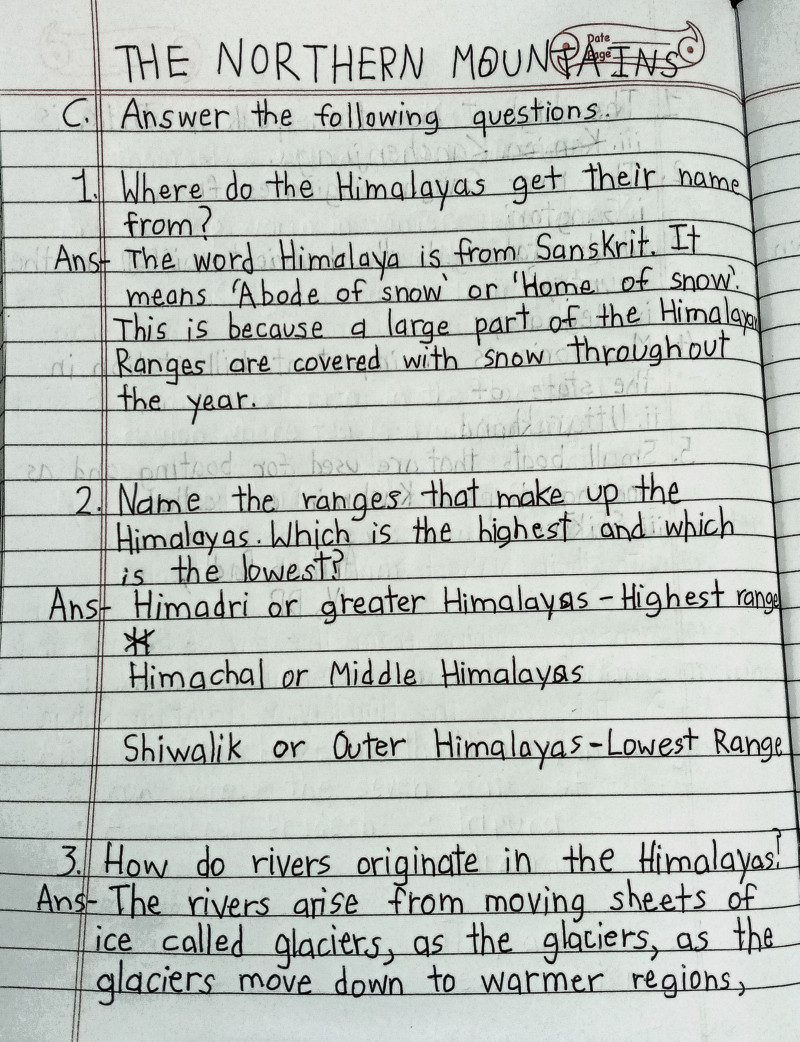 Date
Page
THE NORTHERN MOUNTAINS
C. Answer the following questions.
1. Where do the Himalayas get their name
from?
Ans- The word Himalaya is from Sanskrit. It
means 'Abode of snow' or 'Home of snow'.
This is because a large part of the Himalaya
Ranges are covered with snow throughout
the year.
2. Name the ranges that make up the
Himalayas. Which is the highest and which
is the lowest?
Ans- Himadri or greater Himalayas - Highest range
Himachal or Middle Himalayas
Shiwalik or Outer Himalayas - Lowest Range
3. How do rivers originate in the Himalayas?
Ans- The rivers arise from moving sheets of
ice called glaciers, as the glaciers, as the
glaciers move down to warmer regions,